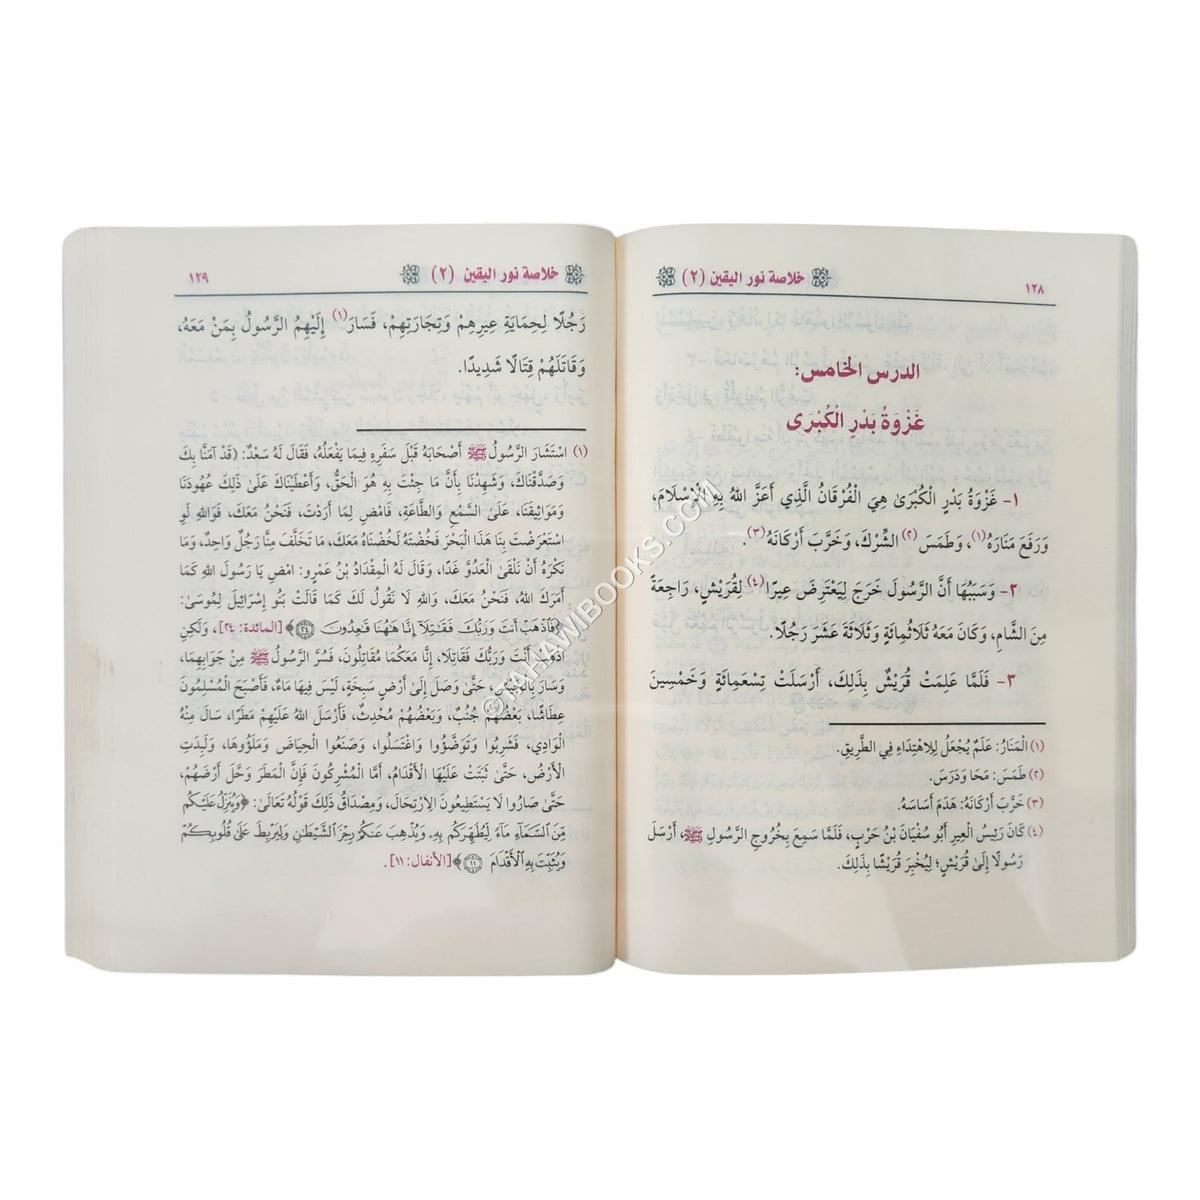 ١٢٨
خلاصة نور اليقين (٢)
الدرس الخامس:
غَزْوَةُ بَدْرٍ الْكُبْرَى
١- غَزْوَةُ بَدْرٍ الْكُبْرَى هِيَ الْفُرْقَانُ الَّذِي أَعَزَّ اللهُ بِهِ الْإِسْلَامَ،
وَرَفَعَ مَنَارَهُ(١)، وَطَمَسَ(٢) الشِّرْكَ، وَخَرَّبَ أَرْكَانَهُ(٣).
٢- وَسَبَبُهَا أَنَّ الرَّسُولَ خَرَجَ لِيَعْتَرِضَ عِيرًا(٤) لِقُرَيْشٍ، رَاجِعَةً
مِنَ الشَّامِ، وَكَانَ مَعَهُ ثَلَاثُمِائَةٍ وَثَلَاثَةَ عَشَرَ رَجُلًا.
٣- فَلَمَّا عَلِمَتْ قُرَيْشٌ بِذَلِكَ، أَرْسَلَتْ تِسْعَمِائَةٍ وَخَمْسِينَ
(١) الْمَنَارُ: عَلَمٌ يُجْعَلُ لِلِاهْتِدَاءِ فِي الطَّرِيقِ.
(٢) طَمَسَ: مَحَا وَدَرَسَ.
(٣) خَرَّبَ أَرْكَانَهُ: هَدَمَ أَسَاسَهُ.
(٤) كَانَ رَئِيسُ الْعِيرِ أَبُو سُفْيَانَ بْنُ حَرْبٍ، فَلَمَّا سَمِعَ بِخُرُوجِ الرَّسُولِ ﷺ، أَرْسَلَ
رَسُولًا إِلَى قُرَيْشٍ؛ لِيُخْبِرَ قُرَيْشًا بِذَلِكَ.
خلاصة نور اليقين (٢)
١٢٩
رَجُلًا لِحِمَايَةِ عِيرِهِمْ وَتِجَارَتِهِمْ، فَسَارَ(١) إِلَيْهِمُ الرَّسُولُ بِمَنْ مَعَهُ،
وَقَاتَلَهُمْ قِتَالًا شَدِيدًا.
(١) اسْتَشَارَ الرَّسُولُ ﷺ أَصْحَابَهُ قَبْلَ سَفَرِهِ فِيمَا يَفْعَلُهُ، فَقَالَ لَهُ سَعْدٌ: (قَدْ آمَنَّا بِكَ
وَصَدَّقْنَاكَ، وَشَهِدْنَا بِأَنَّ مَا جِئْتَ بِهِ هُوَ الْحَقُّ، وَأَعْطَيْنَاكَ عَلَى ذَلِكَ عُهُودَنَا
وَمَوَاثِيقَنَا، عَلَى السَّمْعِ وَالطَّاعَةِ، فَامْضِ لِمَا أَرَدْتَ، فَنَحْنُ مَعَكَ، فَوَاللهِ لَوِ
اسْتَعْرَضْتَ بِنَا هَذَا الْبَحْرَ فَخُضْتَهُ لَخُضْنَاهُ مَعَكَ، مَا تَخَلَّفَ مِنَّا رَجُلٌ وَاحِدٌ، وَمَا
نَكْرَهُ أَنْ نَلْقَى الْعَدُوَّ غَدًا، وَقَالَ لَهُ الْمِقْدَادُ بْنُ عَمْرٍو: امْضِ يَا رَسُولَ اللهِ كَمَا
أَمَرَكَ اللهُ، فَنَحْنُ مَعَكَ، وَاللهِ لَا نَقُولُ لَكَ كَمَا قَالَتْ بَنُو إِسْرَائِيلَ لِمُوسَى:
﴿فَاذْهَبْ أَنتَ وَرَبُّكَ فَقَاتِلَا إِنَّا هَٰهُنَا قَاعِدُونَ ٢٤﴾ [المائدة: ٢٤]، وَلَكِنِ
اذْهَبْ أَنْتَ وَرَبُّكَ فَقَاتِلَا، إِنَّا مَعَكُمَا مُقَاتِلُونَ، فَسُرَّ الرَّسُولُ ﷺ مِنْ جَوَابِهِمَا،
وَسَارَ بِالْجَيْشِ، حَتَّى وَصَلَ إِلَى أَرْضٍ سَبِخَةٍ، لَيْسَ فِيهَا مَاءٌ، فَأَصْبَحَ الْمُسْلِمُونَ
عِطَاشًا، بَعْضُهُمْ جُنُبٌ، وَبَعْضُهُمْ مُحْدِثٌ، فَأَرْسَلَ اللهُ عَلَيْهِمْ مَطَرًا، سَالَ مِنْهُ
الْوَادِي، فَشَرِبُوا وَتَوَضَّؤُوا وَاغْتَسَلُوا، وَصَنَعُوا الْحِيَاضَ وَمَلَؤُوهَا، وَلَبَدَتِ
الْأَرْضُ، حَتَّى ثَبَتَتْ عَلَيْهَا الْأَقْدَامُ، أَمَّا الْمُشْرِكُونَ فَإِنَّ الْمَطَرَ وَحَّلَ أَرْضَهُمْ،
حَتَّى صَارُوا لَا يَسْتَطِيعُونَ الِارْتِحَالَ، وَمِصْدَاقُ ذَلِكَ قَوْلُهُ تَعَالَى: ﴿وَيُنَزِّلُ عَلَيْكُم
مِّنَ السَّمَاءِ مَاءً لِّيُطَهِّرَكُم بِهِ وَيُذْهِبَ عَنكُمْ رِجْزَ الشَّيْطَانِ وَلِيَرْبِطَ عَلَىٰ قُلُوبِكُمْ
وَيُثَبِّتَ بِهِ الْأَقْدَامَ ١١﴾ [الأنفال: ١١].
©TAHAWIBOOKS.COM